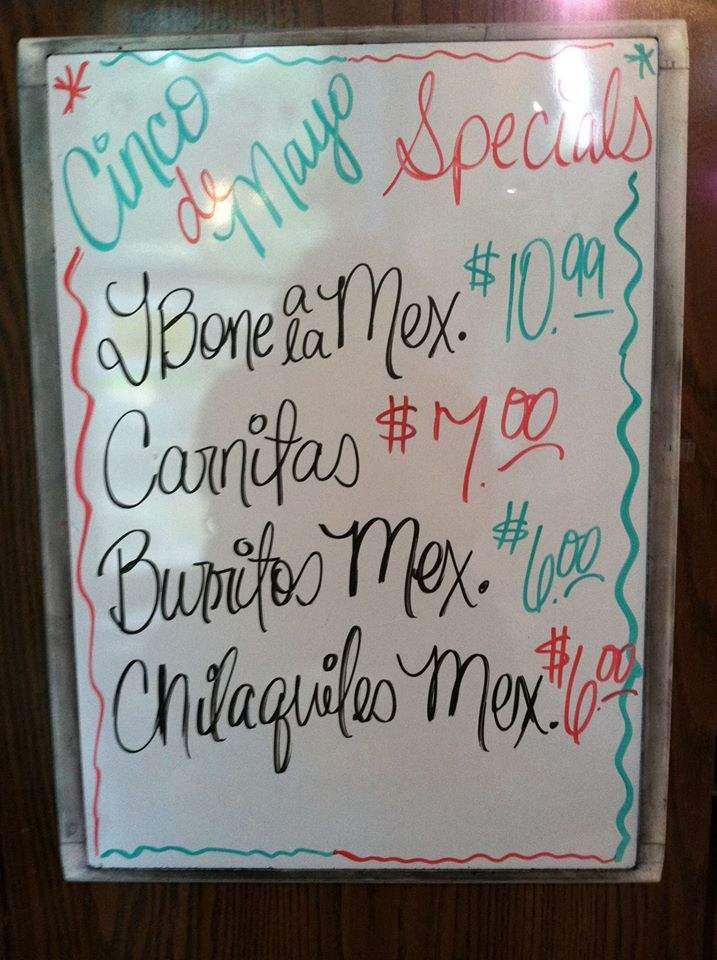 Cinco de Mayo Specials
T Bone a la Mex. $10.99
Carnitas $7.00
Burritos Mex. $6.00
Chilaquiles Mex. $6.00